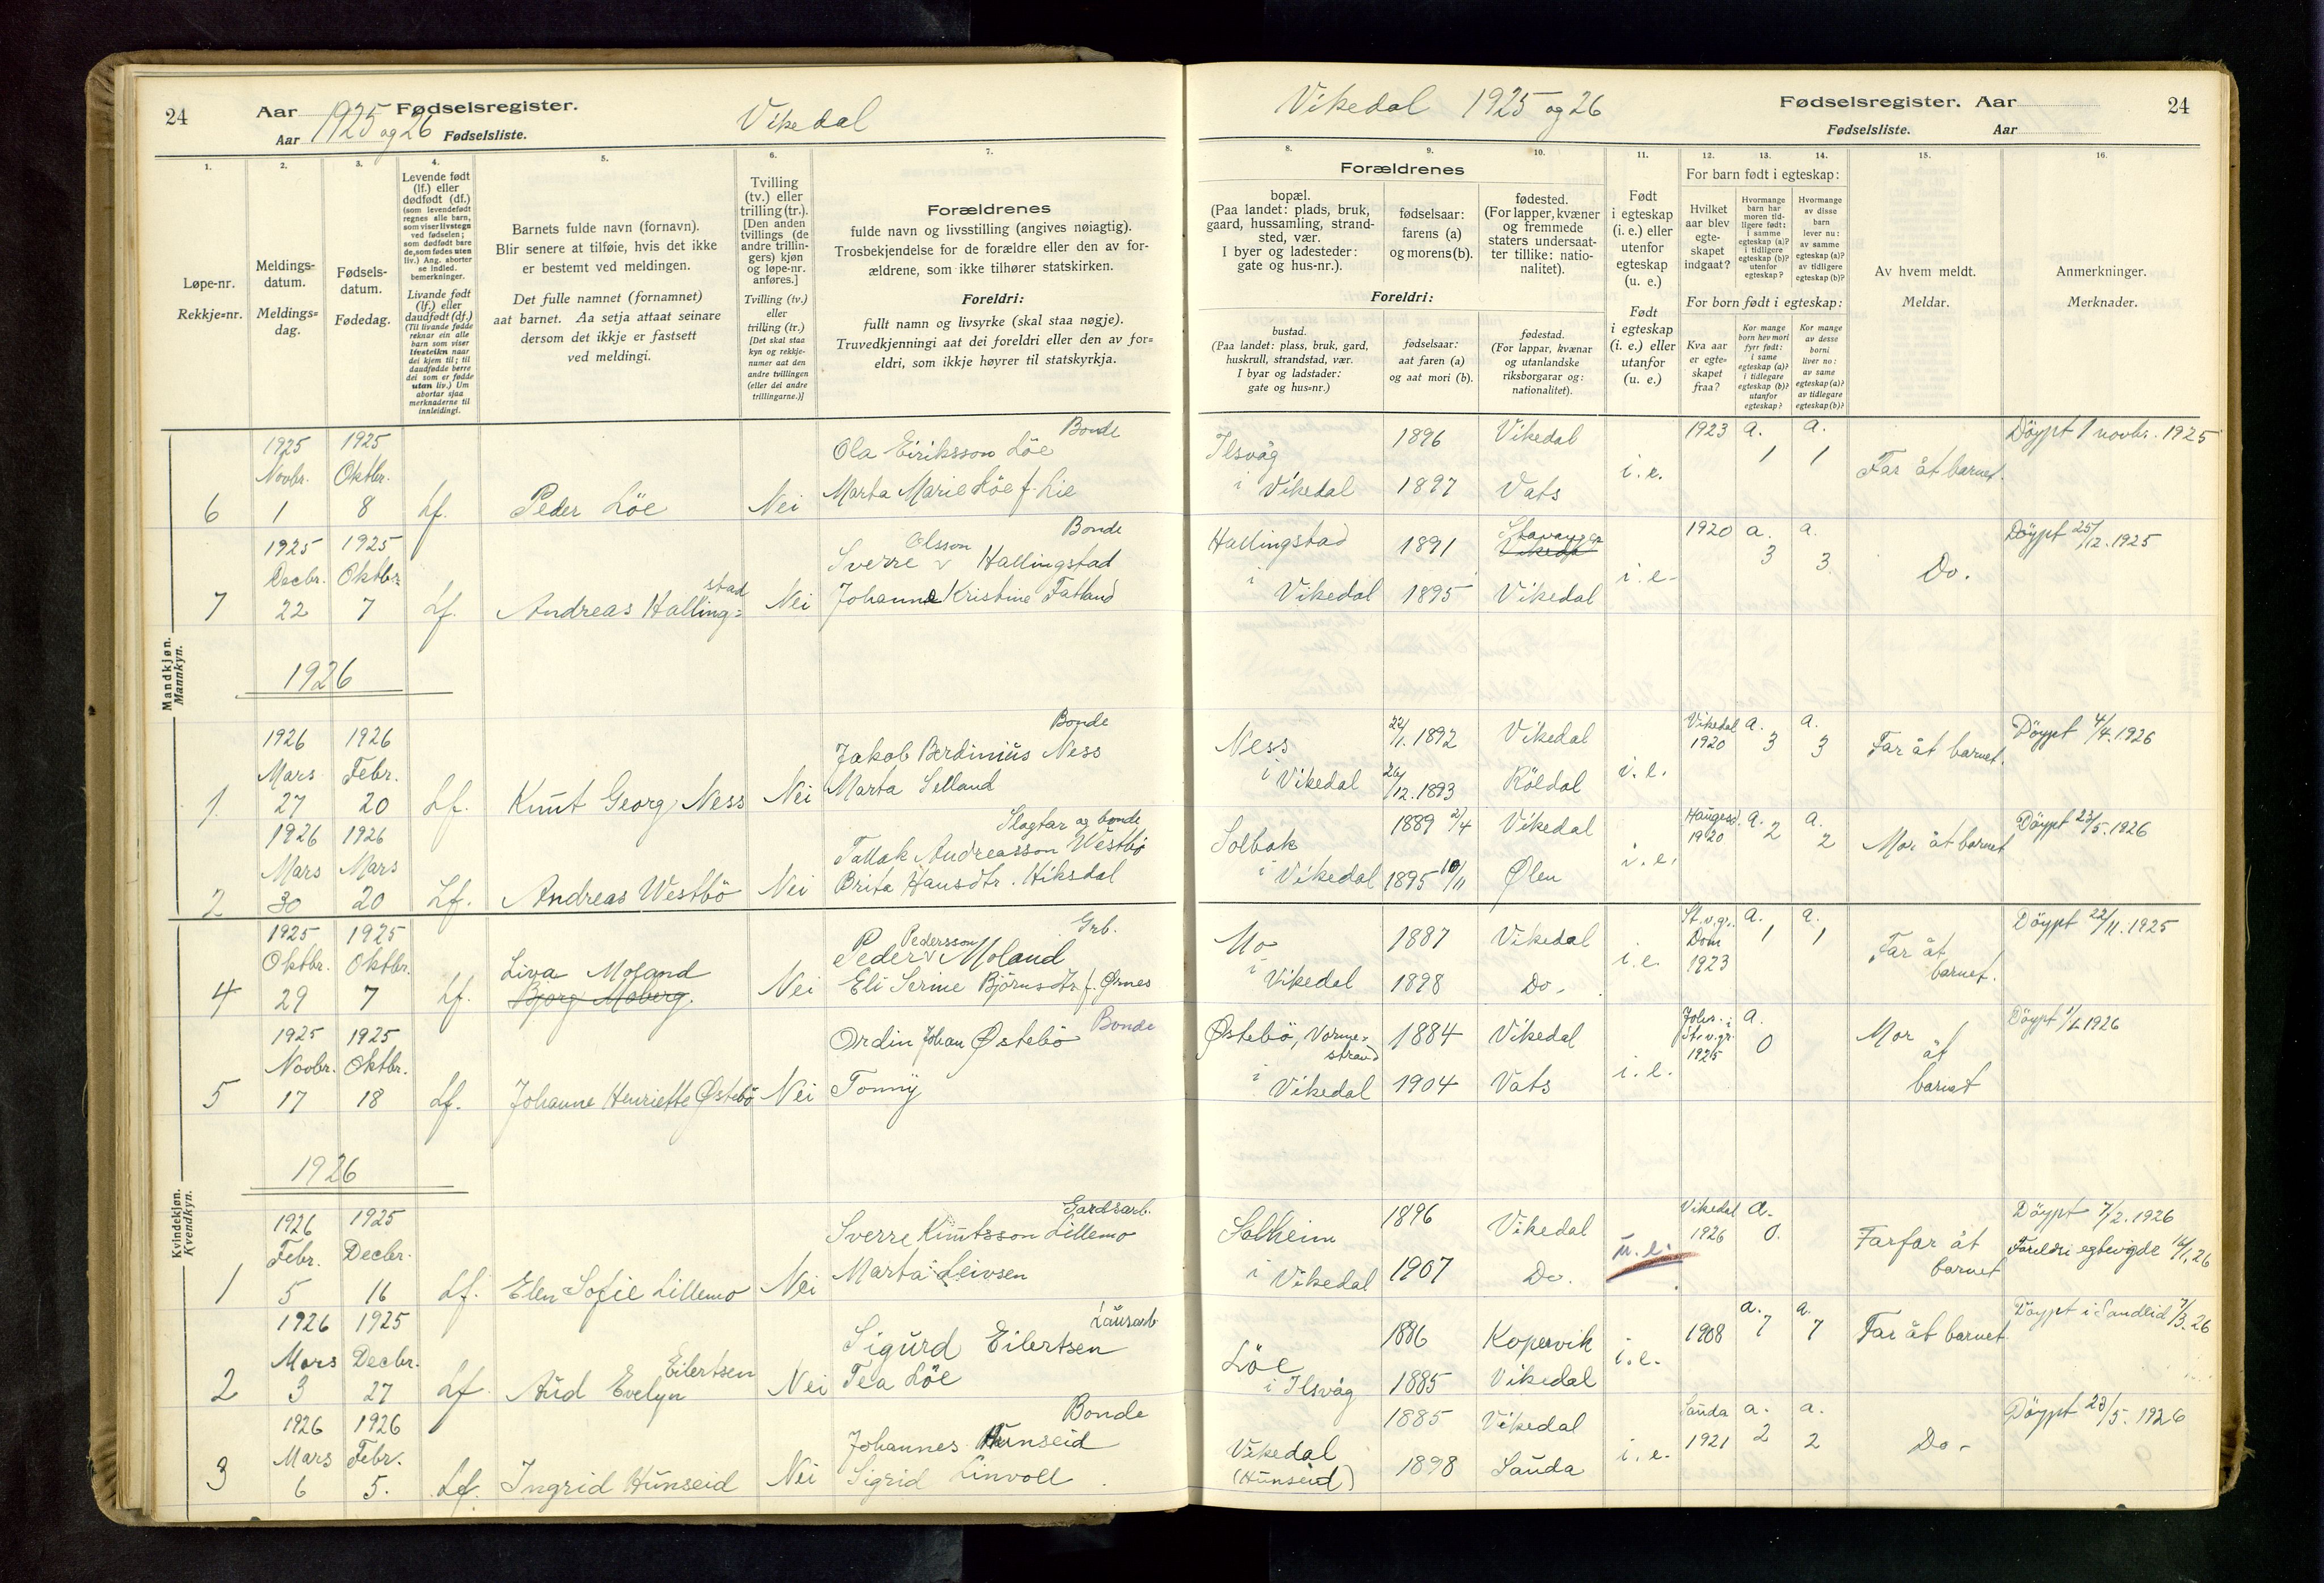 24
Aar 1925 og 26 Fødselsregister.
Aar Fødselsliste.
Vikedal
1.
Løpe-nr.
Rekkje=nr.
2.
Meldings-
datum.
Meldings=
dag.
3.
Fødsels-
datum.
Fødedag.
4.
Levende født
(lf.) eller
dødfødt (df.)
(som levendefødt
regnes alle barn,
som viser livstegn
ved fødselen;
som dødfødt bare
de, som fødes uten
liv.) Ang. aborter
se indled.
bemerkninger.
Livande født
(lf.) eller
daudfødt (df.)
(Til livande fødde
reknar ein alle
barn som viser
livsteikn naar
dei kjem til; til
daudfødde berre
dei som er fødde
utan liv.) Um
abortar sjaa
merknaderne til
innleidingi.
5.
Barnets fulde navn (fornavn).
Blir senere at tilføie, hvis det ikke
er bestemt ved meldingen.
Det fulle namnet (fornamnet)
aat barnet. Aa setja attaat seinare
dersom det ikkje er fastsett
ved meldingi.
6.
Tvilling
(tv.) eller
trilling (tr.).
[Den anden
tvillings (de
andre trillin-
gers) kjøn
og løpe-nr.
anføres.]
Tvilling (tv.)
eller
trilling (tr.)
[Det skal staa
kyn og rekkje-
numer aat den
andre tvillingen
(eller dei andre
trillingarne.)]
7.
Forældrenes
fulde navn og livsstilling (angives nøiagtig).
Trosbekjendelse for de forældre eller den av for-
ældrene, som ikke tilhører statskirken.
Foreldri:
fullt namn og livsyrke (skal staa nøgje).
Truvedkjenningi aat dei foreldri eller den av for=
eldri, som ikkje høyrer til statskyrkja.
Mandkjøn.
Mannkyn.
1925 1925 Bonde
Novbr. Oktbr. Ola Eiriksson Löe
6 1 8 Lf. Peder Löe Nei Marta Marie Löe f. Lie
1925 1925 Bonde
Olsson
Decbr. Oktbr. Sverre v Hallingstad
stad
7 22 7 Lf. Andreas Halling= Nei Johanne Kristine Fatland
1926
1926 1926 Bonde
Mars Febr. Jakob Berdinius Ness
1. 27 20 Lf. Knut Georg Ness Nei Marta Selland
1926 1926 Slagtar og bonde
Mars Mars Tallak Andreasson Westbö
2 30 20 Lf. Andreas Westbö Nei Brita Hansdtr. Hiksdal
Kvindekjøn.
Kvendkyn.
1925 1925 Grb.
Pedersson
Oktbr. Oktbr. Liva Moland Peder v Moland
4 29 7 Lf. Bjorg Moberg. Nei Eli Serine Björnsdtr f. Ørnes
1925 1925 Bonde
Novbr. Oktbr. Ordin Johan Østebö
5 17 18 Lf. Johanne Henriette Østebö Nei Tonny
1926
1926 1925 Gardsarb.
Febr. Decbr. Sverre Knutsson Lillemo
1 5 16 Lf. Elen Sofie Lillemo Nei Marta Leivsen
1926 1925 Lausarb
Mars Decbr. Eilertsen Sigurd Eilertsen
2 3 27 Lf Aud Evelyn Nei Tea Löe
1926 1926 Bonde
Mars Febr. Johannes Hunseid
3 6 5. Lf. Ingrid Hunseid Nei Sigrid Linvoll
Vikedal 1925 og 26
Fødselsregister. Aar
Fødselsliste. Aar
24
Forældrenes
8.
bopæl.
(Paa landet: plads, bruk,
gaard, hussamling, strand-
sted, vær.
I byer og ladesteder:
gate og hus-nr.).
9.
fødselsaar:
farens (a)
og morens (b).
10.
fødested.
(For lapper, kvæner
og fremmede
staters undersaat-
ter tillike: natio-
nalitet).
Foreldri:
bustad.
(Paa landet: plass, bruk, gard,
huskrull, strandstad, vær.
I byar og ladstader:
gate og hus=nr.)
fødselsaar:
aat faren (a)
og aat mori (b).
fødestad.
(For lappar, kvænar
og utanlandske
riksborgarar og:
nationalitet).
11.
Født
i egteskap
(i. e.) eller
utenfor
egteskap
(u. e.)
Født
i egteskap
(i. e.) eller
utanfor
(u. e.)
12. 13. 14.
For barn født i egteskap:
Hvilket
aar blev
egte-
skapet
indgaat?
Hvormange
barn har
moren tid-
ligere født:
i samme
egteskap (a)?
i tidligere
egteskap (b)?
utenfor
egteskap?
Hvormange
av disse
barn
lever nu:
av samme
egteskap (a)?
av tidligere
egteskap (b)?
For born født i egteskap:
Kva aar
er egte=
skapet
fraa?
Kor mange
born hev mori
fyrr født:
i same
egteskap (a)?
i tidlegare
egteskap (b)?
utanfor
egteskap?
Kor mange
av desse
borni
liver no:
av same
egteskap (a)?
av tidlegare
egteskap (b)?
15.
Av hvem meldt.
Meldar.
16.
Anmerkninger.
Merknader.
Ilsvåg 1896 Vikedal 1923 a. a. Döypt 1 novbr. 1925
i. e. 1 1 Far åt barnet.
i Vikedal 1897 Vats
Hallingstad 1891 Stavanger 1920 a. a. Döypt 25/12. 1925
Vikedal
3 3 Do.
i Vikedal 1895 Vikedal i. e.
Ness 22/1. 1892 Vikedal Vikedal a. a. Döypt 4/4. 1926
1920 3 3 Far åt barnet.
i Vikedal 26/12. 1893 Röldal i. e.
Solbak 1889 2/4 Vikedal Haugesd. a. a. Döypt 23/5. 1926
1920 2 2 Mor åt barnet
i Vikedal 1895 10/11 Ølen i. e.
Mo 1887 Vikedal St.v.gr. a. a. Döypt 22/11. 1925
Dom 1 1 Far åt
i Vikedal 1898 Do. i. e. 1923 barnet.
Østebö, Vorme= 1884 Vikedal St.v.gr. a. Mor Döypt 1/1 1926
strand 1925 0 åt
i Vikedal 1904 Vats i. e. barnet
Solheim 1896 Vikedal Vikedal a. Döypt 7/2. 1926
u. e. 1926 0. Farfar åt Foreldri egtevigde 16/1. 26
i Vikedal 1907 Do. barnet
1886 Kopervik i. e. 1908 a. 7 a. 7 Far åt barnet Döypt i Sandeid 7/3. 26
Löe
i Ilsvåg 1885 Vikedal
1885 Vikedal Sauda a. a. Döypt 23/5. 1926
Vikedal 1921 2 2 Do.
(Hunseid) 1898 Sauda i. e.